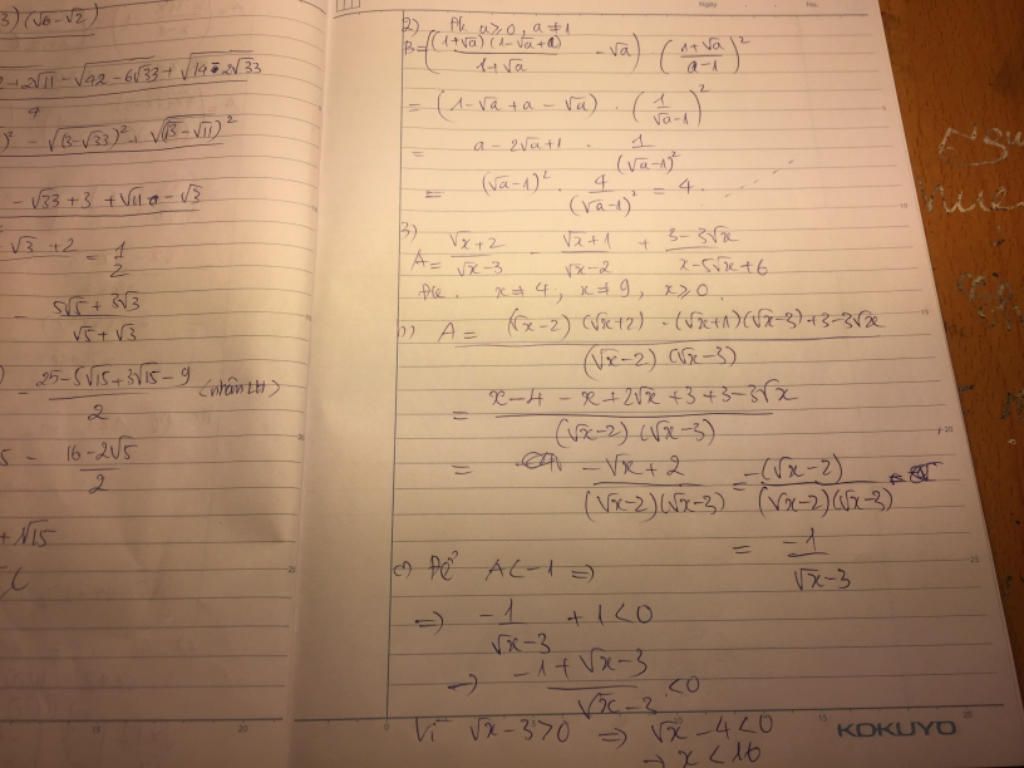 3) (√6-√2)
2+2√11 - √42-6√33 + √14-2√33
)² - √(3-√33)² + √(√3-√11)²
- √33 + 3 + √11 - √3
√3 + 2 = 1/2
- (5√5 + 3√3)/(√5 + √3)
- (25-5√15+3√15-9)/2 (nhân LH)
5 - (16-2√5)/2
+ √15
2) Đk a≥0, a≠1
B=((1+√a)(1-√a+a)/(1+√a) - √a) ((1+√a)/(a-1))²
= (1-√a+a-√a) · (1/(√a-1))²
= a-2√a+1 · 1/(√a-1)²
= (√a-1)² · 4/(√a-1)² = 4.
3)
A= (√x+2)/(√x-3) - (√x+1)/(√x-2) + (3-3√x)/(x-5√x+6)
Đk. x≠4, x≠9, x≥0.
1) A = ((√x-2)(√x+2) - (√x+1)(√x-3)+3-3√x)/((√x-2)(√x-3))
= (x-4-x+2√x+3+3-3√x)/((√x-2)(√x-3))
= (-√x+2)/((√x-2)(√x-3)) = -(√x-2)/((√x-2)(√x-3))
= -1/(√x-3)
c) Để A<-1 ⇒
⇒ -1/(√x-3) + 1<0
→ (-1+√x-3)/(√x-3) <0
Vì √x-3>0 ⇒ √x-4<0
→ x<16
KOKUYO